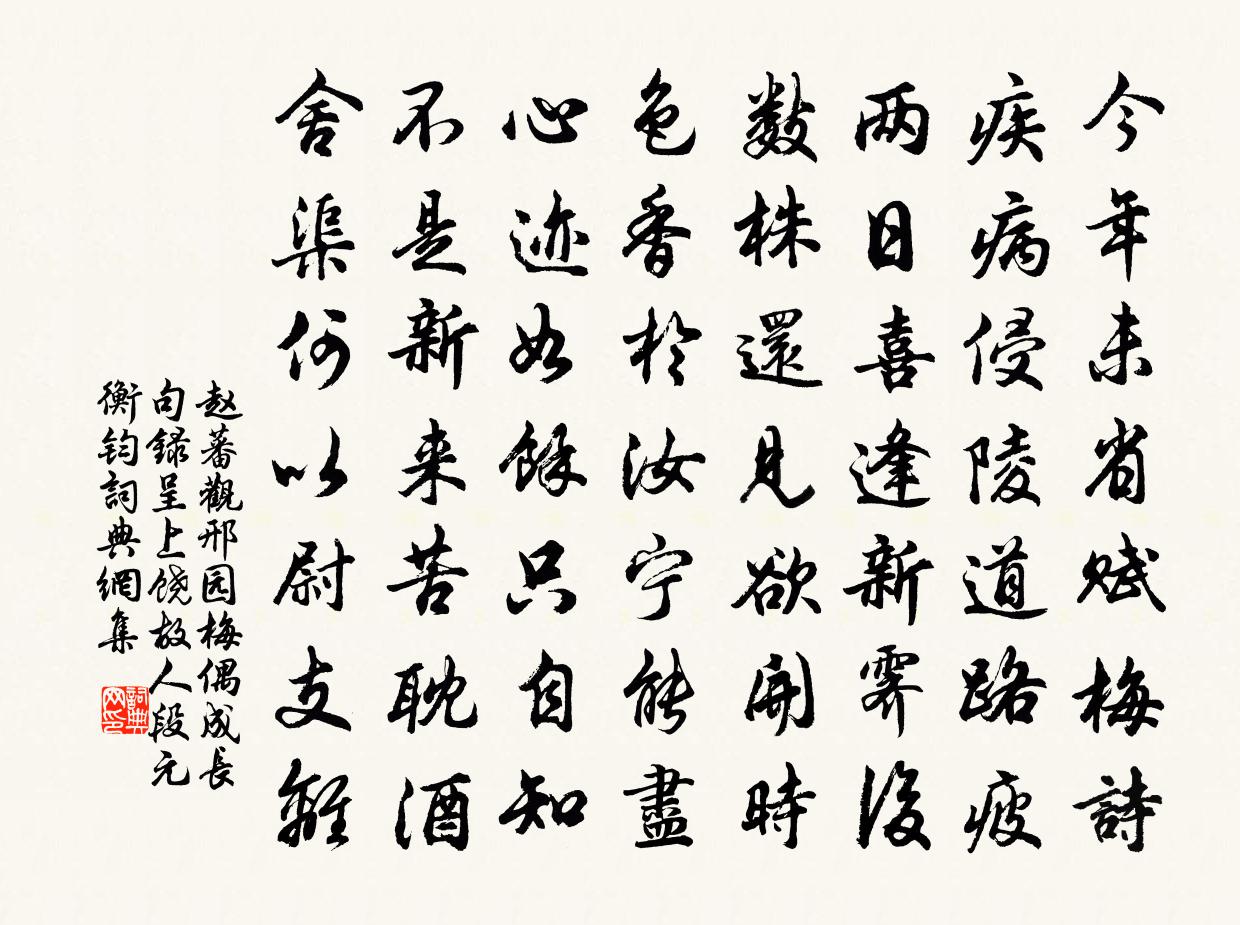 今年未省赋梅詩
疾病侵陵道路疲
两日喜逢新霁後
数株還見欲開時
色香於汝宁能盡
心迹如餘只自知
不是新来苦耽酒
舍渠何以尉支離
赵蕃觀邢园梅偶成長
句録呈上饶故人段元
衡钧詞典網集
詞典
网印